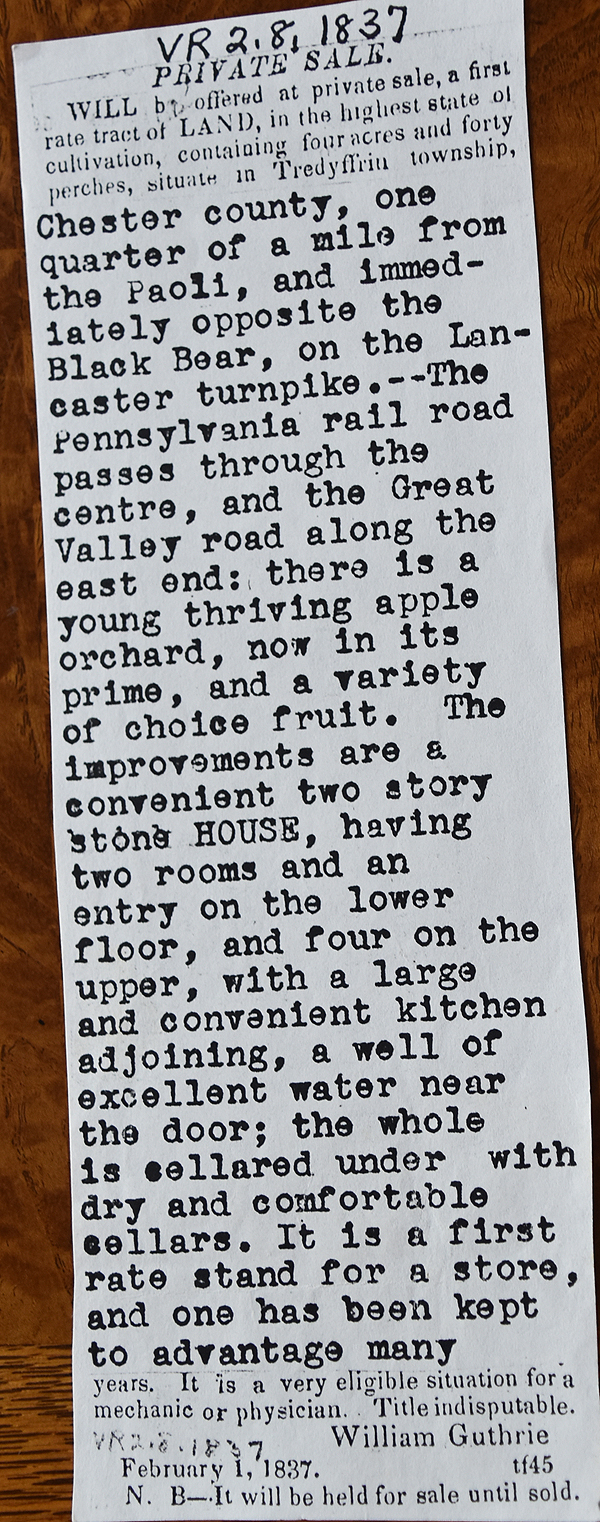 VR 2.8, 1837
PRIVATE SALE.
WILL be offered at private sale, a first
rate tract of LAND, in the highest state of
cultivation, containing four acres and forty
perches, situate in Tredyffrin township,
Chester county, one
quarter of a mile from
the Paoli, and immed-
iately opposite the
Black Bear, on the Lan-
caster turnpike.--The
Pennsylvania rail road
passes through the
centre, and the Great
Valley road along the
east end: there is a
young thriving apple
orchard, now in its
prime, and a variety
of choice fruit. The
improvements are a
convenient two story
stone HOUSE, having
two rooms and an
entry on the lower
floor, and four on the
upper, with a large
and convenient kitchen
adjoining, a well of
excellent water near
the door; the whole
is cellared under with
dry and comfortable
cellars. It is a first
rate stand for a store,
and one has been kept
to advantage many
years. It is a very eligible situation for a
mechanic or physician. Title indisputable.
VR 2.8.1837 William Guthrie
February 1, 1837. tf45
N. B—It will be held for sale until sold.